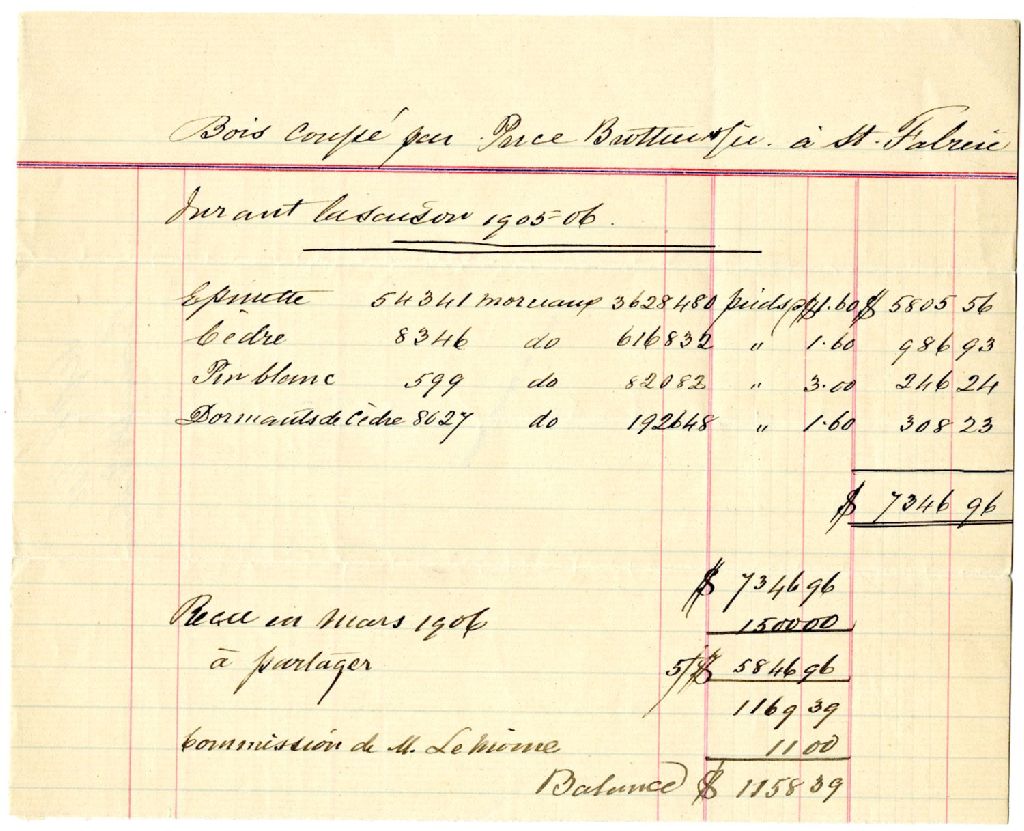 Bois coupé par Price Brothers & Cie. à St. Fabien
Durant la saison 1905-06.
Epinette 54341 morceaux 3628480 pieds @ $1.60 $ 5805 56
Cèdre 8346 do 616832 " 1.60 986 93
Pin blanc 599 do 82082 " 3.00 246 24
Dormants de Cèdre 8027 do 192648 " 1.60 308 23
$ 7346 96
$ 7346 96
Recu en Mars 1906 1500 00
à partager 5/ $ 5846 96
1169 39
Commission de M. LeMoine 11 00
Balance $ 1158 39